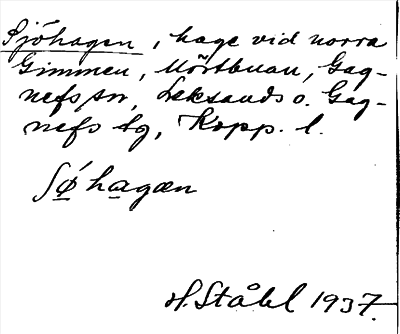 Sjöhagen, hage vid norra
Gimmen, Mörtbuan, Gag-
nefs sn, Leksands o. Gag-
nefs tg, Kopp. l.
ʃǿhagæn
H. Ståhl 1937.